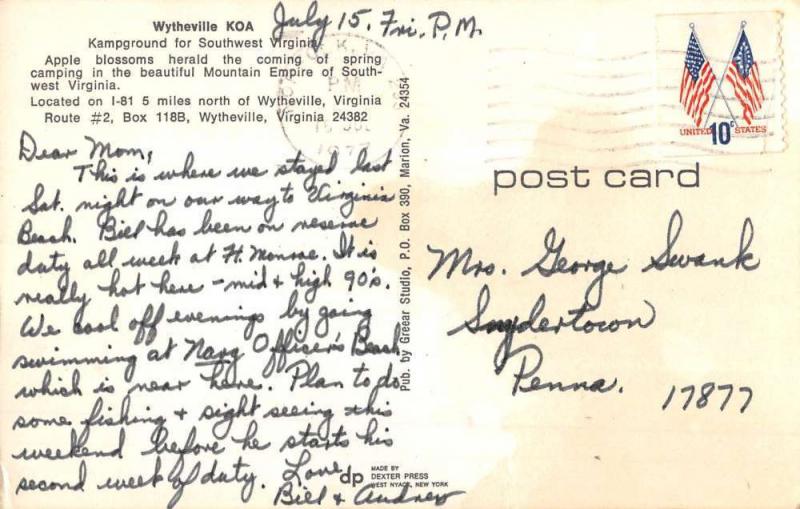 Wytheville KOA
Kampground for Southwest Virginia
Apple blossoms herald the coming of spring
camping in the beautiful Mountain Empire of South-
west Virginia.
Located on I-81 5 miles north of Wytheville, Virginia
Route #2, Box 118B, Wytheville, Virginia 24382
July 15. Fri. P.M.
Dear Mom,
This is where we stayed last
Sat. night on our way to Virginia
Beach. Bill has been on reserve
duty all week at Ft. Monroe. It is
really hot here - mid & high 90's.
We cool off evenings by going
swimming at Navy Officer's Beach
which is near here. Plan to do
some fishing & sight seeing this
weekend before he starts his
second week of duty. Love
Bill & Andrew
Pub. by Greear Studio, P.O. Box 390, Marion, Va. 24354
dp
MADE BY
DEXTER PRESS
WEST NYACK, NEW YORK
PM
1977
UNITED 10c STATES
post card
Mrs. George Swank
Snydertown
Penna. 17877